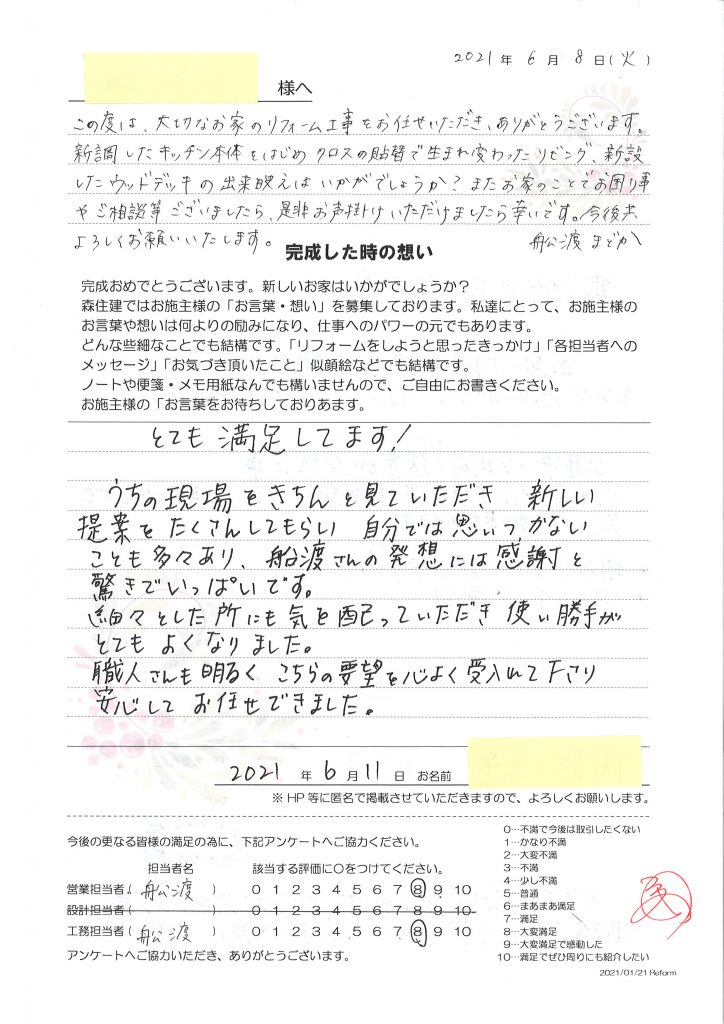 2021年 6月 8日(火)
様へ
この度は、大切なお家のリフォーム工事をお任せいただき、ありがとうございます。
新調したキッチン本体をはじめ クロスの貼替で生まれ変わったリビング、新設
したウッドデッキの出来映えはいかがでしょうか？またお家のことでお困り事
やご相談等ございましたら、是非お声掛けいただけましたら幸いです。今後共
よろしくお願いいたします。 舩渡 まどか
完成した時の想い
完成おめでとうございます。新しいお家はいかがでしょうか？
森住建ではお施主様の「お言葉・想い」を募集しております。私達にとって、お施主様の
お言葉や想いは何よりの励みになり、仕事へのパワーの元でもあります。
どんな些細なことでも結構です。「リフォームをしようと思ったきっかけ」「各担当者への
メッセージ」「お気づき頂いたこと」似顔絵などでも結構です。
ノートや便箋・メモ用紙なんでも構いませんので、ご自由にお書きください。
お施主様の「お言葉をお待ちしておりあます。
とても 満足してます！
うちの現場をきちんと見ていただき 新しい
提案をたくさんしてもらい 自分では思いつかない
ことも多々あり、船渡さんの発想には感謝と
驚きでいっぱいです。
細々とした所にも気を配っていただき 使い勝手が
とてもよくなりました。
職人さんも明るく こちらの要望を心よく受入れて下さり
安心して お任せできました。
2021 年 6 月 11 日 お名前
※HP等に匿名で掲載させていただきますので、よろしくお願いします。
今後の更なる皆様の満足の為に、下記アンケートへご協力ください。
担当者名 該当する評価に○をつけてください。
営業担当者( 舩渡 ) 0 1 2 3 4 5 6 7 8 9 10
設計担当者( ) 0 1 2 3 4 5 6 7 8 9 10
工務担当者( 舩渡 ) 0 1 2 3 4 5 6 7 8 9 10
アンケートへご協力いただき、ありがとうございます。
0…不満で今後は取引したくない
1…かなり不満
2…大変不満
3…不満
4…少し不満
5…普通
6…まあまあ満足
7…満足
8…大変満足
9…大変満足で感動した
10…満足でぜひ周りにも紹介したい
2021/01/21 Reform